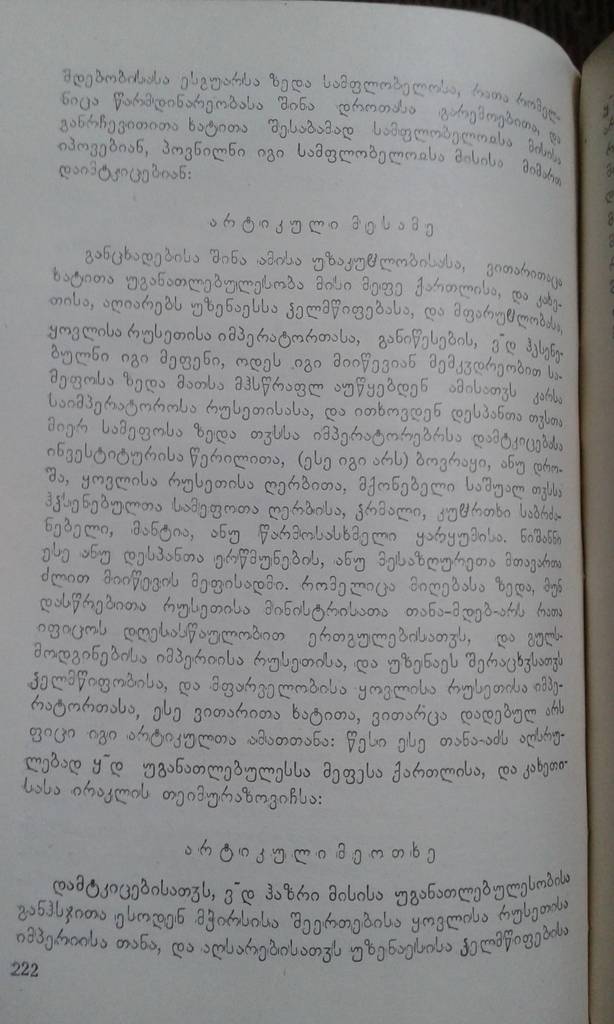 მდებობისასა ესგუარსა ზედა სამფლობელოსა, რათა რომელ-
ნიცა წარმდინარეობასა შინა დროთასა გარემოებითა, და
განრჩევითითა ხატითა შესაბამად სამფლობელოასა მისისა
იპოვებიან, პოვნილნი იგი სამფლობელოასა მისისა მიმართ
დაიმტკიცებიან:
არტიკული მესამე
განცხადებისა შინა ამისა უზაკუჱლობისასა, ვითარითაცა
ხატითა უგანათლებულესობა მისი მეფე ქართლისა, და კახე-
თისა, აღიარებს უზენაესსა ჴელმწიფებასა, და მფარუჱლობასა,
ყოვლისა რუსეთისა იმპერატორთასა, განიწესების, ვ~დ ჰჴსენე-
ბულნი იგი მეფენი, ოდეს იგი მიიწევიან მემკჳდრეობით სა-
მეფოსა ზედა მათსა მჰსწრაფლ აუწყებდენ ამისათჳს კარსა
საიმპერატოროსა რუსეთისასა, და ითხოვდენ დესპანთა თჳსთა
მიერ სამეფოსა ზედა თჳსსა იმპერატორებრსა დამტკიცებასა
ინვესტიტურისა წერილითა, (ესე იგი არს) ბოვრაყი, ანუ დრო-
შა, ყოვლისა რუსეთისა ღერბითა, მქონებელი საშუალ თჳსსა
ჰჴსენებულთა სამეფოთა ღერბისა, ჴრმალი, კუჱრთხი საბრძა-
ნებელი, მანტია, ანუ წარმოსასხმელი ყარყუმისა. ნიშანნი
ესე ანუ დესპანთა ერწმუნების, ანუ მესაზღურეთა მთავართა
ძლით მიიწევის მეფისადმი. რომელიცა მიღებასა ზედა, მუნ
დასწრებითა რუსეთისა მინისტრისათა თანა-მდებ-არს რათა
იფიცოს დღესასწაულობით ერთგულებისათჳს, და გულს-
მოდგინებისა იმპერიისა რუსეთისა, და უზენაეს შერაცხჳსათჳს
ჴელმწიფობისა, და მფარველობისა ყოვლისა რუსეთისა იმპე-
რატორთასა, ესე ვითარითა ხატითა, ვითარცა დადებულ არს
ფიცი იგი არტიკულთა ამათთანა: წესი ესე თანა-აძს აღსრუ-
ლებად ყ~დ უგანათლებულესსა მეფესა ქართლისა, და კახეთი-
სასა ირაკლის თეიმურაზოვიჩსა:
არტიკული მეოთხე
დამტკიცებისათჳს, ვ~დ ჰაზრი მისისა უგანათლებულესობისა
განჰსჯითა ესოდენ მჭირსისა შეერთებისა ყოვლისა რუსეთისა
იმპერიისა თანა, და აღსარებისათჳს უზენაესისა ჴელმწიფებისა
222